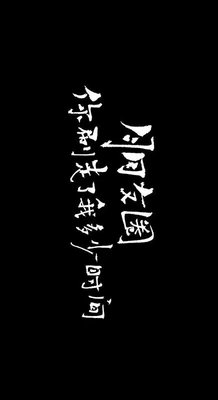 朋友圈
你刷走了我多少时间